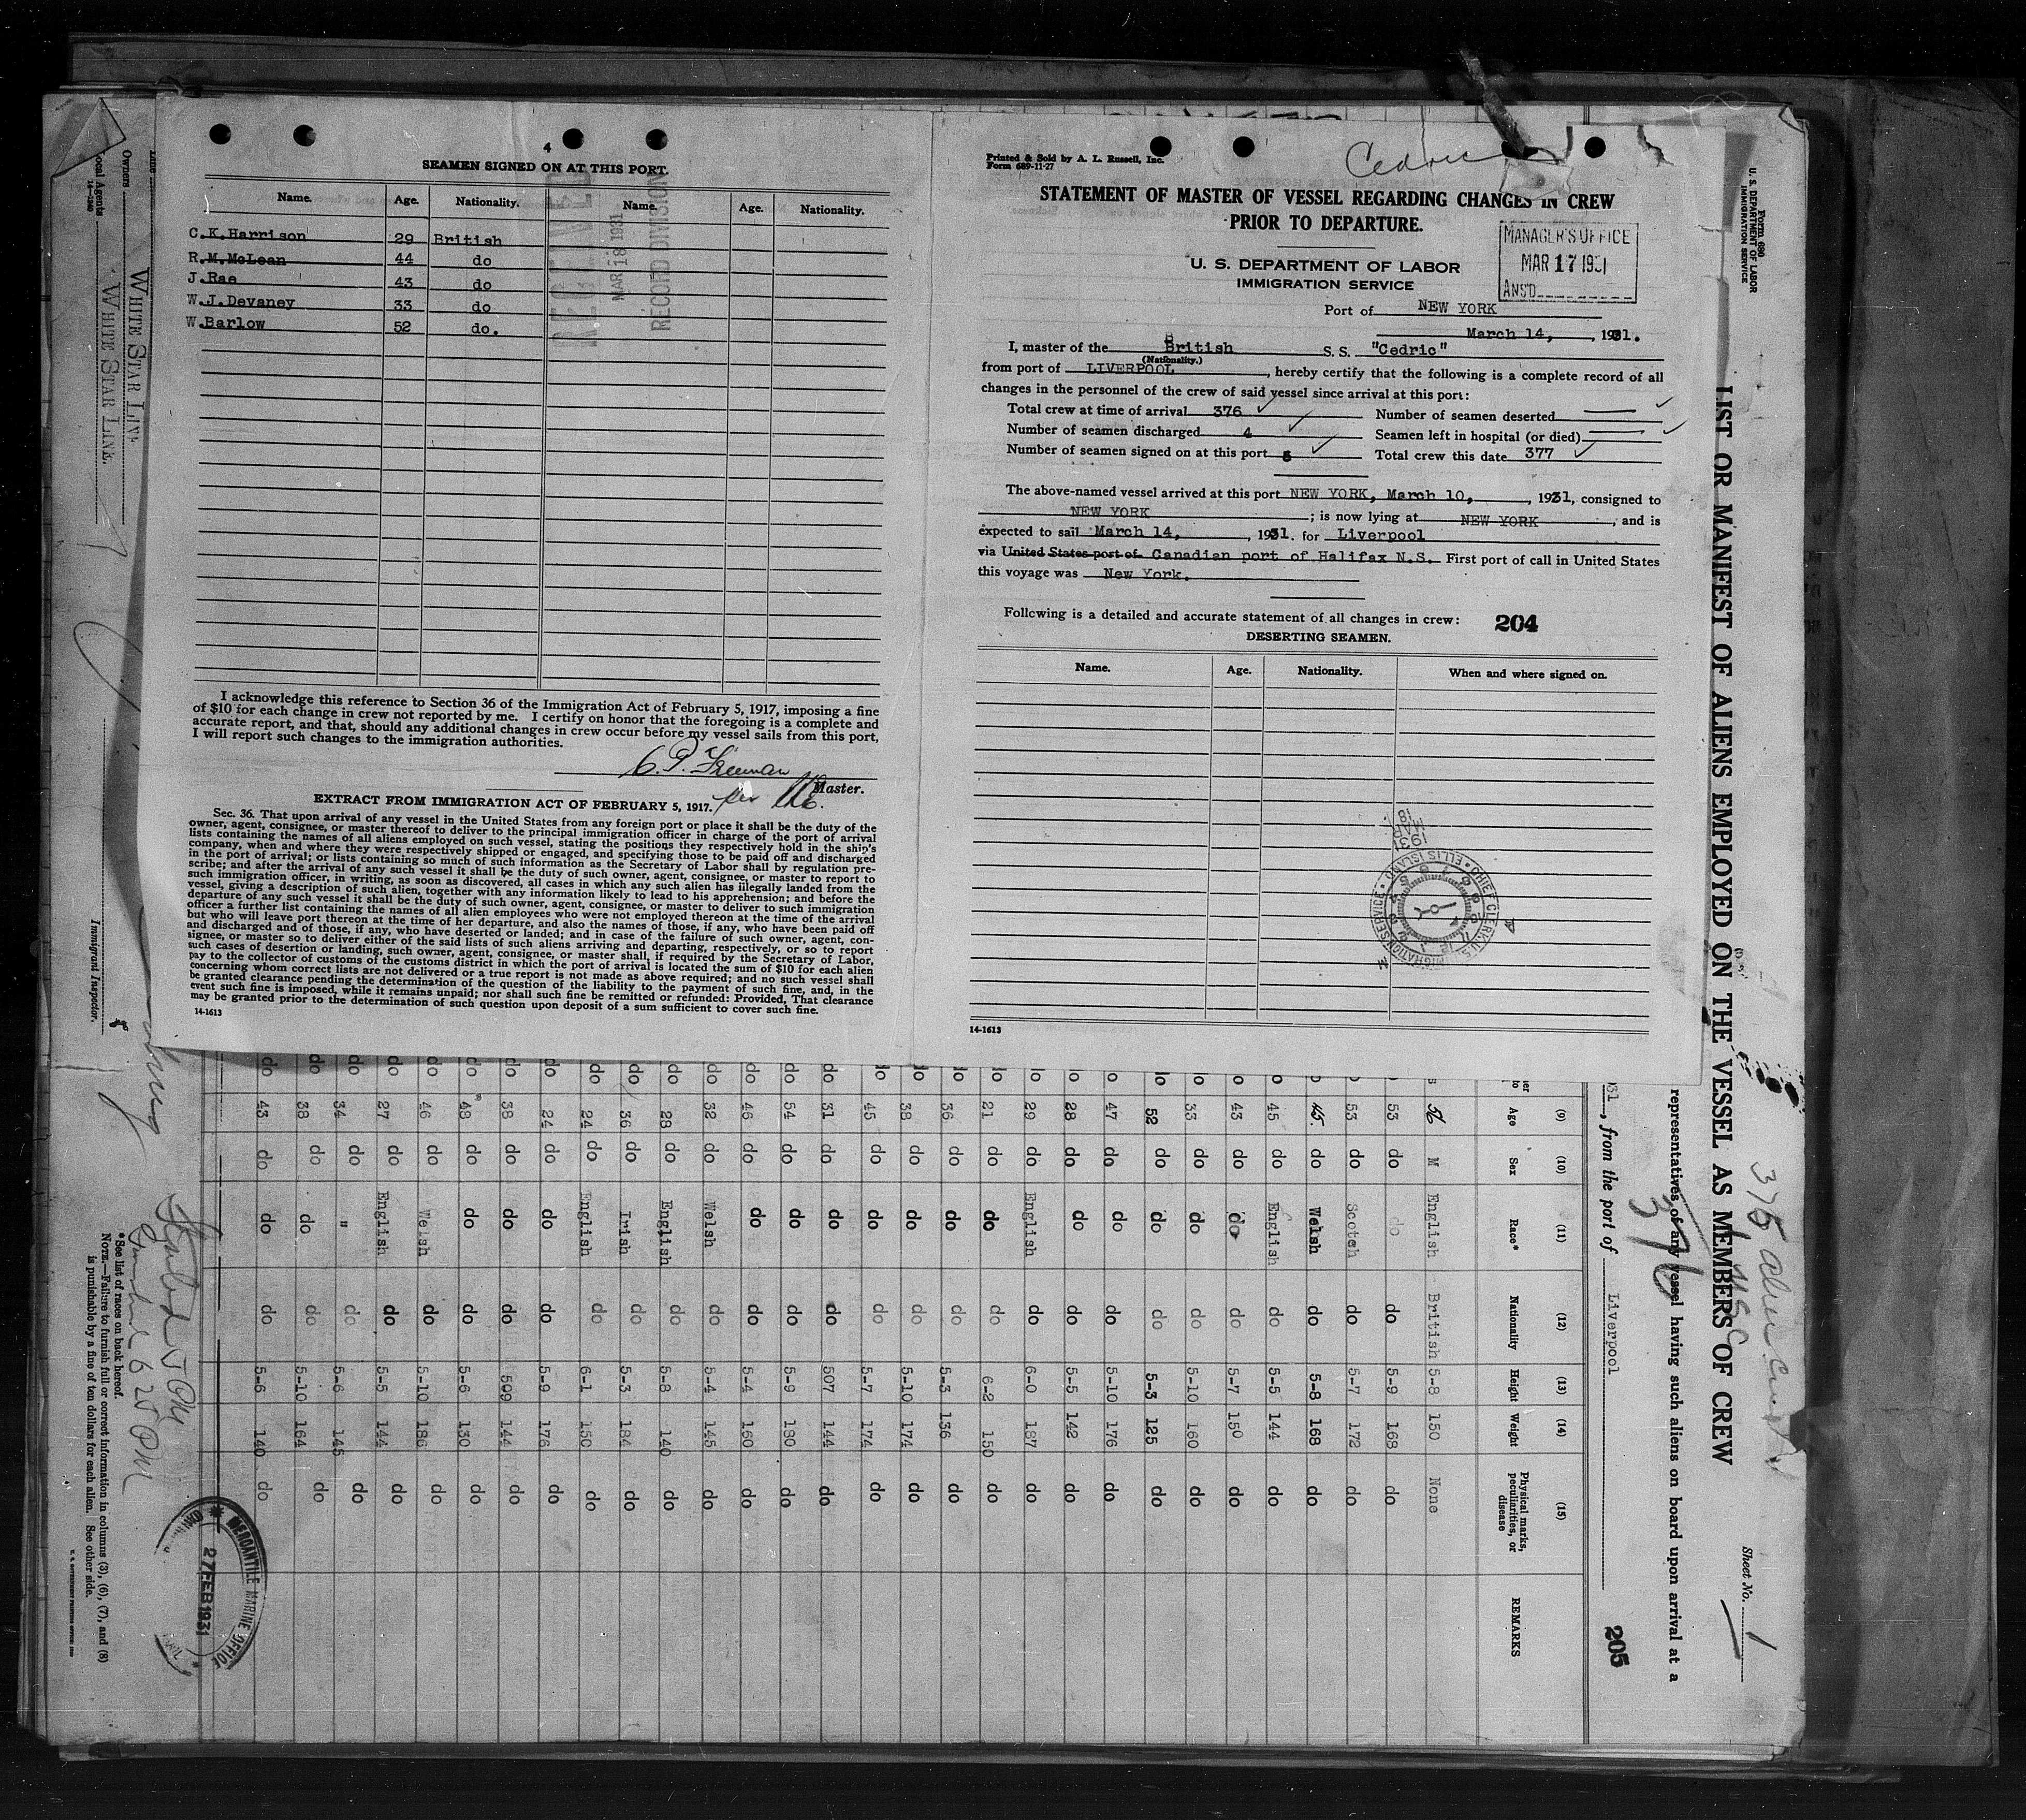 4
SEAMEN SIGNED ON AT THIS PORT.
Name. Age. Nationality. Name. Age. Nationality.
C.K.Harrison 29 British
R.M.McLean 44 do
J.Rae 43 do
W.J.Devaney 33 do
W.Barlow 52 do.
RECEIVED
MAR 18 1931
RECORD DIVISION
I acknowledge this reference to Section 36 of the Immigration Act of February 5, 1917, imposing a fine
of $10 for each change in crew not reported by me. I certify on honor that the foregoing is a complete and
accurate report, and that, should any additional changes in crew occur before my vessel sails from this port,
I will report such changes to the immigration authorities.
C. P. Freeman
Master.
per
EXTRACT FROM IMMIGRATION ACT OF FEBRUARY 5, 1917.
Sec. 36. That upon arrival of any vessel in the United States from any foreign port or place it shall be the duty of the
owner, agent, consignee, or master thereof to deliver to the principal immigration officer in charge of the port of arrival
lists containing the names of all aliens employed on such vessel, stating the positions they respectively hold in the ship's
company, when and where they were respectively shipped or engaged, and specifying those to be paid off and discharged
in the port of arrival; or lists containing so much of such information as the Secretary of Labor shall by regulation pre-
scribe; and after the arrival of any such vessel it shall be the duty of such owner, agent, consignee, or master to report to
such immigration officer, in writing, as soon as discovered, all cases in which any such alien has illegally landed from the
vessel, giving a description of such alien, together with any information likely to lead to his apprehension; and before the
departure of any such vessel it shall be the duty of such owner, agent, consignee, or master to deliver to such immigration
officer a further list containing the names of all alien employees who were not employed thereon at the time of the arrival
but who will leave port thereon at the time of her departure, and also the names of those, if any, who have been paid off
and discharged and of those, if any, who have deserted or landed; and in case of the failure of such owner, agent, con-
signee, or master so to deliver either of the said lists of such aliens arriving and departing, respectively, or so to report
such cases of desertion or landing, such owner, agent, consignee, or master shall, if required by the Secretary of Labor,
pay to the collector of customs of the customs district in which the port of arrival is located the sum of $10 for each alien
concerning whom correct lists are not delivered or a true report is not made as above required; and no such vessel shall
be granted clearance pending the determination of the question of the liability to the payment of such fine, and, in the
event such fine is imposed, while it remains unpaid; nor shall such fine be remitted or refunded: Provided, That clearance
may be granted prior to the determination of such question upon deposit of a sum sufficient to cover such fine.
14-1613
Printed & Sold by A. L. Russell, Inc.
Form 689-11-27
Cedric
STATEMENT OF MASTER OF VESSEL REGARDING CHANGES IN CREW
PRIOR TO DEPARTURE.
MANAGER'S OFFICE
MAR 17 1931
ANS'D
U. S. DEPARTMENT OF LABOR
IMMIGRATION SERVICE
Port of NEW YORK
March 14, , 1931.
I, master of the British S. S. "Cedric"
(Nationality.)
from port of LIVERPOOL , hereby certify that the following is a complete record of all
changes in the personnel of the crew of said vessel since arrival at this port:
Total crew at time of arrival 376 Number of seamen deserted
Number of seamen discharged 4 Seamen left in hospital (or died)
Number of seamen signed on at this port 5 Total crew this date 377
The above-named vessel arrived at this port NEW YORK, March 10, , 1931, consigned to
NEW YORK ; is now lying at NEW YORK , and is
expected to sail March 14, , 1931. for Liverpool
via United States port of Canadian port of Halifax N.S. First port of call in United States
this voyage was New York.
Following is a detailed and accurate statement of all changes in crew: 204
DESERTING SEAMEN.
Name. Age. Nationality. When and where signed on.
1931 MAR 18
CHIEF CLERK, U.S. IMMIGRATION SERVICE ELLIS ISLAND
14-1613
Form 680
U. S. DEPARTMENT OF LABOR
IMMIGRATION SERVICE
LIST OR MANIFEST OF ALIENS EMPLOYED ON THE VESSEL AS MEMBERS OF CREW
Sheet No. 1
375 Alien
376
representatives of any vessel having such aliens on board upon arrival at a
, from the port of Liverpool
205
(9) (10) (11) (12) (13) (14) (15)
Age Sex Race* Nationality Height Weight Physical marks, peculiarities, or disease REMARKS
56 M English British 5-8 150 None
53 do do do 5-9 168 do
53 do Scotch do 5-7 172 do
45. do Welsh do 5-8 168 do
45 do English do 5-5 144 do
43 do do do 5-7 150 do
33 do do do 5-10 160 do
52 do do do 5-3 125 do
47 do do do 5-10 176 do
28 do do do 5-5 142 do
29 do English do 6-0 187 do
21 do do do 6-2 150 do
36 do do do 5-3 136 do
38 do do do 5-10 174 do
45 do do do 5-7 174 do
31 do do do 507 144 do
54 do do do 5-9 180 do
46 do do do 5-4 160 do
32 do Welsh do 5-4 145 do
28 do English do 5-8 140 do
36 do Irish do 5-3 184 do
24 do English do 6-1 150 do
24 do do do 5-9 176 do
38 do do do 509 144 do
48 do do do 5-6 130 do
46 do Welsh do 5-10 186 do
27 do English do 5-5 144 do
34 do " do 5-6 145 do
38 do do do 5-10 164 do
43 do do do 5-6 140 do
MERCANTILE MARINE OFFICE
27 FEB 1931
*See list of races on back hereof.
NOTE.—Failure to furnish full or correct information in columns (3), (6), (7), and (8)
is punishable by a fine of ten dollars for each alien. See other side.
Started 5 PM
Finished 6 25 PM
Immigrant Inspector.
Line WHITE STAR LINE
Owners WHITE STAR LINE.
Local Agents
14-1240